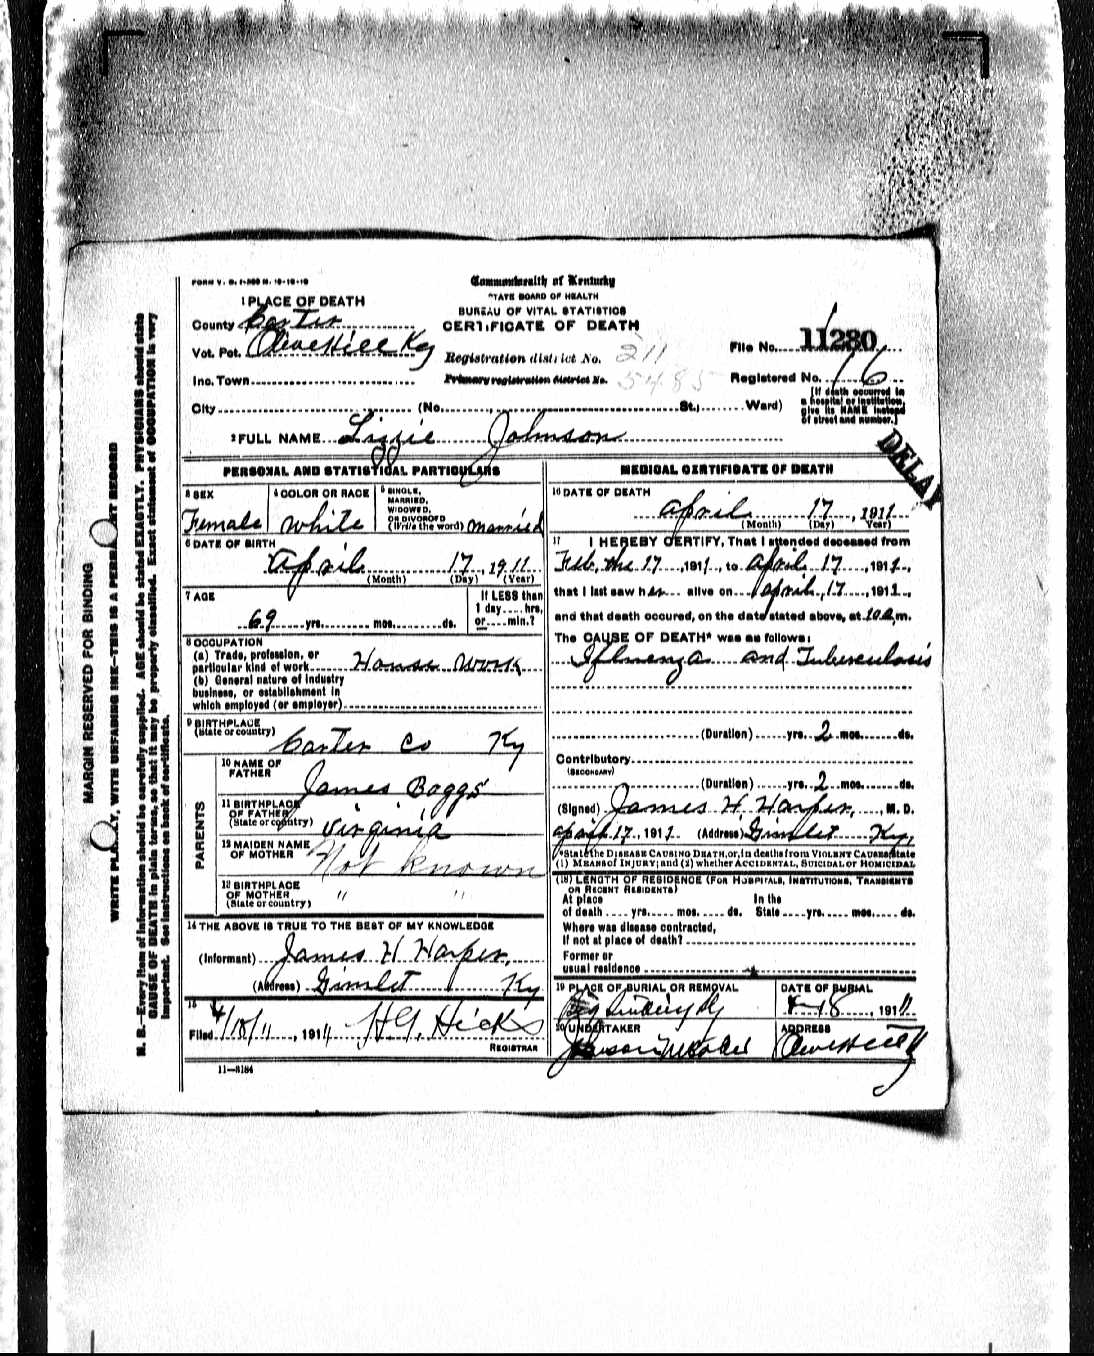 FORM V. S. 1-
Commonwealth of Kentucky
STATE BOARD OF HEALTH
BUREAU OF VITAL STATISTICS
CERTIFICATE OF DEATH
1 PLACE OF DEATH
County Carter
Vot. Pct. Olive Hill Ky
Inc. Town
Registration district No. 211
Primary registration district No. 5485
File No. 11280
Registered No. 16
City (No. St.; Ward)
[If death occurred in
a hospital or institution,
give its NAME instead
of street and number.]
DELAY
2 FULL NAME Lizzie Johnson
PERSONAL AND STATISTICAL PARTICULARS
3 SEX
Female
4 COLOR OR RACE
White
5 SINGLE,
MARRIED,
WIDOWED,
OR DIVORCED
(Write the word) Married
6 DATE OF BIRTH
April 17, 1911
(Month) (Day) (Year)
7 AGE
69 yrs. mos. ds.
If LESS than
1 day hrs.
or min.?
8 OCCUPATION
(a) Trade, profession, or
particular kind of work House Work
(b) General nature of industry
business, or establishment in
which employed (or employer)
9 BIRTHPLACE
(State or country) Carter Co Ky
PARENTS
10 NAME OF
FATHER James Boggs
11 BIRTHPLACE
OF FATHER
(State or country) Virginia
12 MAIDEN NAME
OF MOTHER Not Known
13 BIRTHPLACE
OF MOTHER
(State or country) " "
14 THE ABOVE IS TRUE TO THE BEST OF MY KNOWLEDGE
(Informant) James H Harper,
(Address) Gimlet Ky
15
Filed 4/18/11, 1911 H G Hicks
REGISTRAR
11-3184
MEDICAL CERTIFICATE OF DEATH
16 DATE OF DEATH
April 17, 1911
(Month) (Day) (Year)
17 I HEREBY CERTIFY, That I attended deceased from
Feb, the 17, 1911, to April 17, 1911,
that I last saw her alive on April, 17, 1911,
and that death occured, on the date stated above, at 10 a.m.
The CAUSE OF DEATH* was as follows:
Ifluenza and Tuberculosis
(Duration) yrs. 2 mos. ds.
Contributory
(SECONDARY)
(Duration) yrs. 2 mos. ds.
(Signed) James H. Harper, M. D.
April 17, 1911 (Address) Gimlet Ky,
*State the DISEASE CAUSING DEATH, or, in deaths from VIOLENT CAUSES, state
(1) MEANS of INJURY; and (2) whether ACCIDENTAL, SUICIDAL or HOMICIDAL
(18) LENGTH OF RESIDENCE (FOR HOSPITALS, INSTITUTIONS, TRANSIENTS
OR RECENT RESIDENTS)
At place In the
of death yrs. mos. ds. State yrs. mos. ds.
Where was disease contracted,
If not at place of death?
Former or
usual residence
19 PLACE OF BURIAL OR REMOVAL
DATE OF BURIAL
4-18, 1911
20 UNDERTAKER
ADDRESS
Olive Hill Ky
MARGIN RESERVED FOR BINDING
WRITE PLAINLY, WITH UNFADING INK—THIS IS A PERMANENT RECORD
N. B.—Every item of information should be carefully supplied. AGE should be stated EXACTLY. PHYSICIANS should state
CAUSE OF DEATH in plain terms, so that it may be properly classified. Exact statement of OCCUPATION is very
important. See instructions on back of certificate.